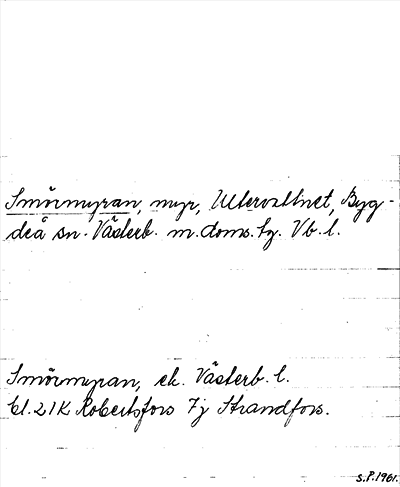 Smörmyran, myr, Ultervattnet, Byg-
deå sn. Västerb. m. doms. tg. Vb. l.
Smörmyran, ek. Västerb. l.
bl. 21K Robertsfors 7j Strandfors.
S.P. 1961.